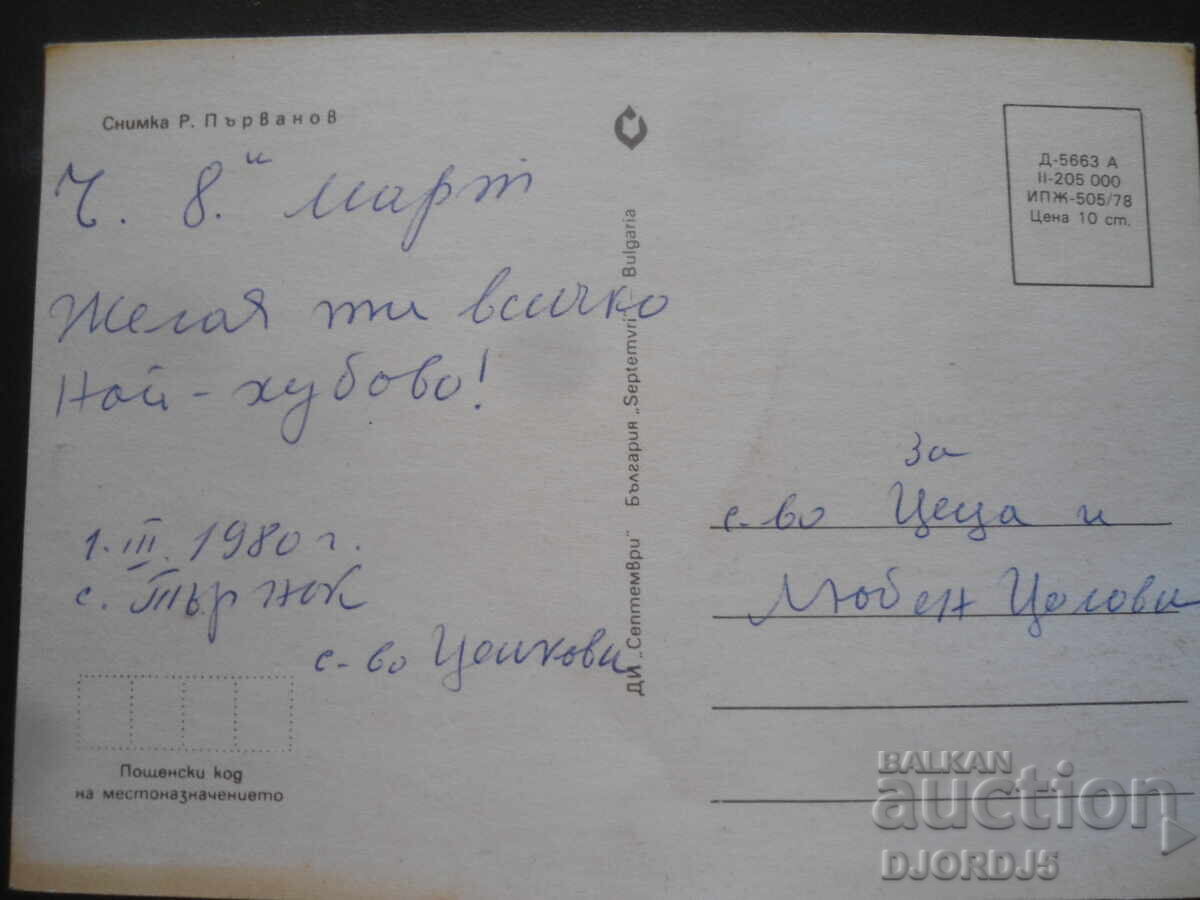 Снимка Р. Първанов
Ч. 8.и март
Желая ти всичко
най-хубово!
1.III.1980 г.
с. Търнак
с-во Цолкови
Пощенски код
на местоназначението
ДИ „Септември" България „Septemvri" – Bulgaria
Д-5663 А
II-205 000
ИПЖ-505/78
Цена 10 ст.
за
с-во Цеца и
Любен Цолови
BALKAN
auction
DJORDJ5